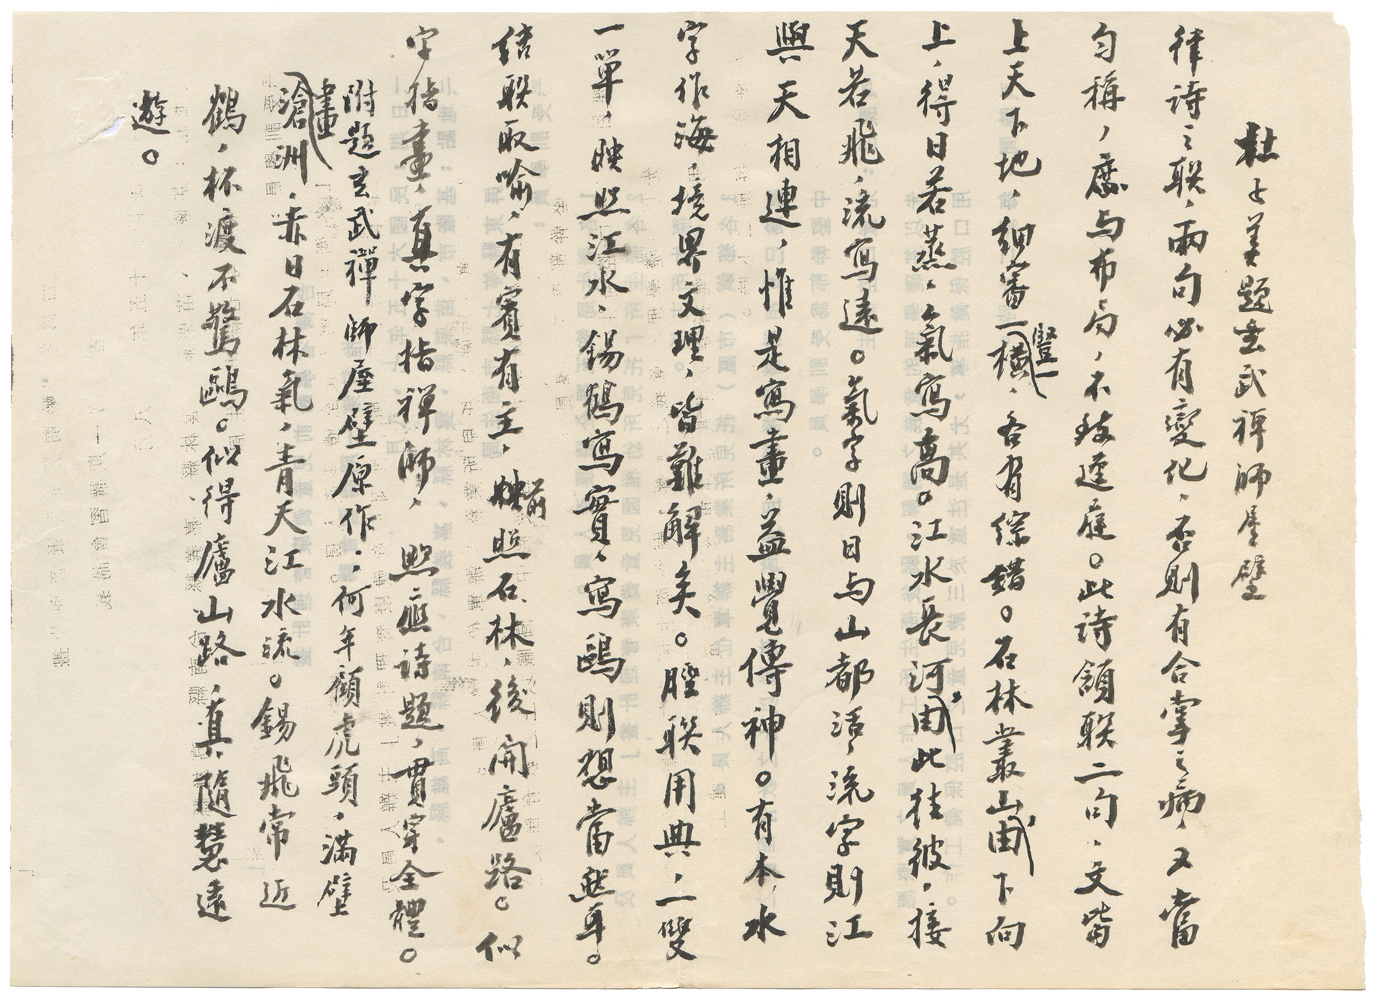 杜子美題玄武禪師屋壁
律诗之联，兩句必有變化，否則有合掌之病，又當
匀稱，庶与布局，不致逕庭。此诗頷联二句，文皆
上天下地，细審一横豎一，各有综错。石林叢山由下向
上，得日若蒸，氣寫高。江水長河，由此往彼，接
天若飛，流寫遠。氣字則日与山都活，流字則江
與天相連，惟是寫畫，益覺傳神。有本，水
字作海，境界文理，皆難解矣。脛联用典，一雙
一單，映照江水，錫鶴寫實，寫鷗則想當然耳。
结联取喻，有賓有主，前映照石林，後開廬路。似
字指畫，真字指禅师，照應诗题，貫穿全體。
附题玄武禪師屋壁原作，何年顧虎頭，滿壁
畫滄洲，赤日石林氣，青天江水流。錫飛常近
鶴，杯渡不驚鷗。似得廬山路，真隨慧遠
遊。